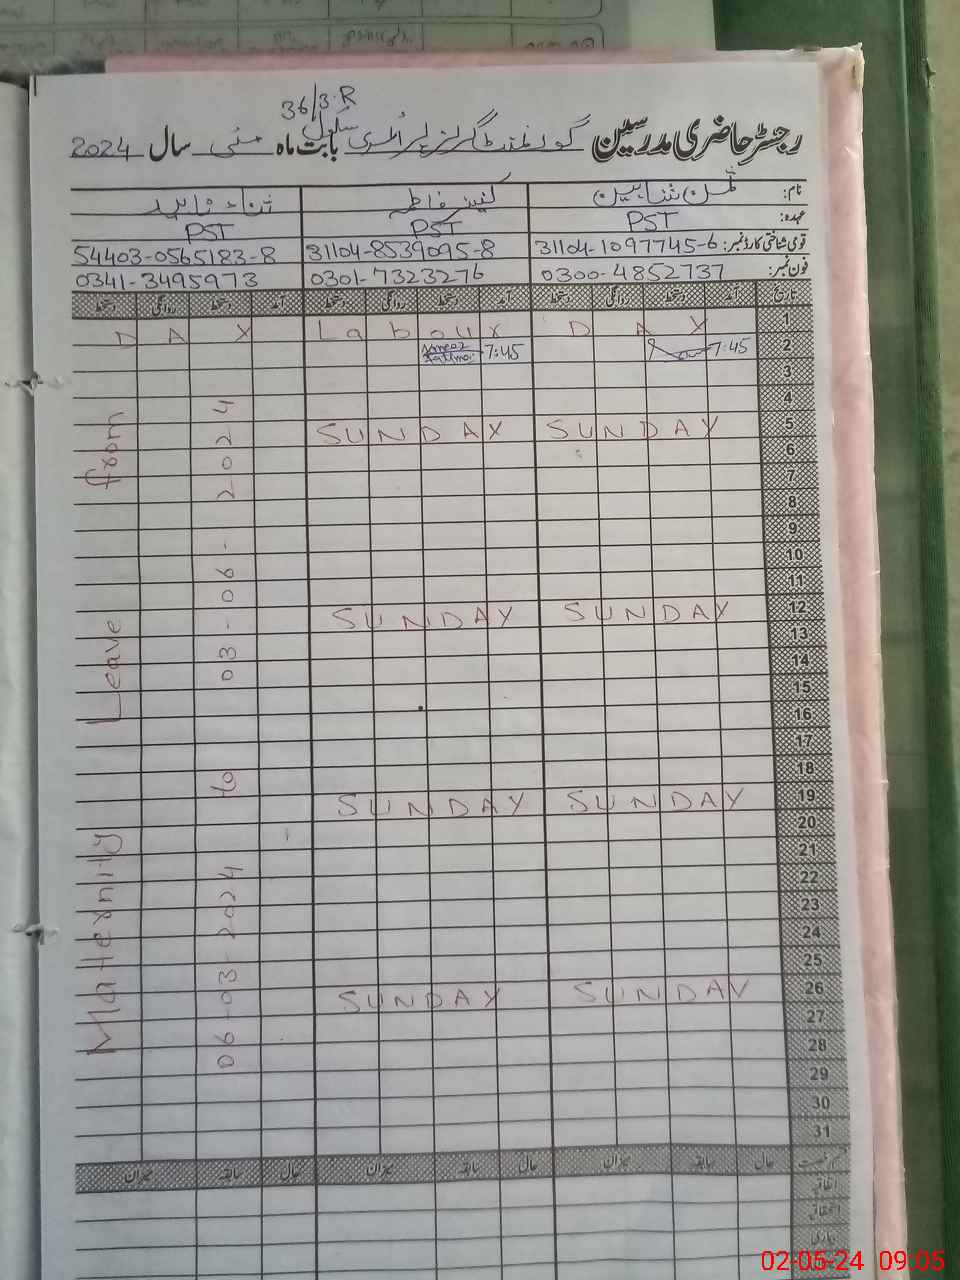 36/3.R
رجسٹر حاضری مدرسین گورنمنٹ گرلز پرائمری سکول بابت ماہ مئی سال 2024
نام: ثمن شاہین کنیز فاطمہ ثناء
عہدہ: PST PST PST
قومی شناختی کارڈ نمبر: 31104-1097745-6 31104-8539095-8 54403-0565183-8
فون نمبر: 0300-4852737 0301-7323276 0341-3495973
تاریخ آمد دستخط روانگی دستخط آمد دستخط روانگی دستخط آمد دستخط روانگی دستخط
1 DAY Labour DAY
2 7:45 Kaneez Fatima 7:45
3
4
5 SUNDAY SUNDAY
6
7
8
9
10
11
12 SUNDAY SUNDAY
13
14
15
16
17
18
19 SUNDAY SUNDAY
20
21
22
23
24
25
26 SUNDAY SUNDAY
27
28
29
30
31
Matternity Leave from
06-03-2024 to 03-06-2024
قسم رخصت حال سابقہ میزان حال سابقہ میزان حال سابقہ میزان
اتفاقیہ
استحقاقی
بیماری
02-05-24 09:05